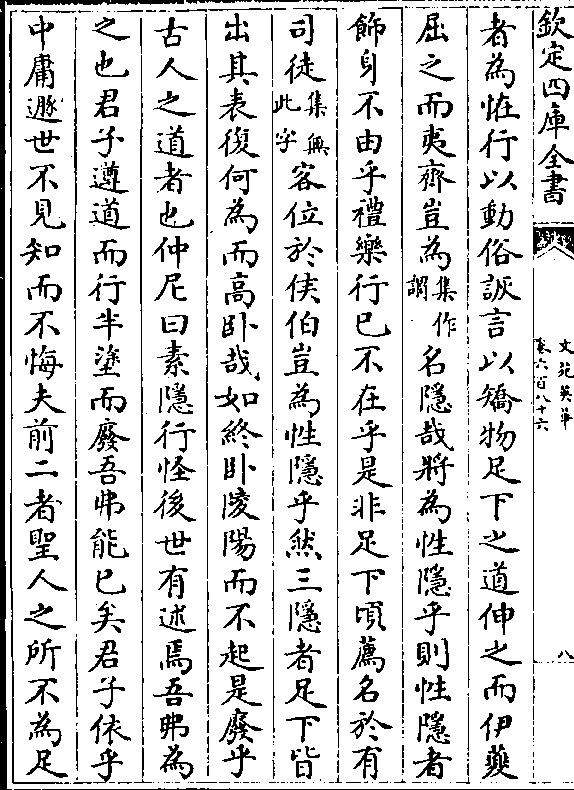 欽定四庫全書
文苑英華
卷六百八十六
八
者為恠行以動俗詼言以矯物足下之道伸之而伊蘷
屈之而夷齊豈為集作謂名隱哉將為性隱乎則性隱者
飾身不由乎禮樂行已不在乎是非足下頃薦名於有
司徒集無此字客位於侯伯豈為性隱乎然三隱者足下皆
出其表復何為而高卧哉如終卧陵陽而不起是廢乎
古人之道者也仲尼曰素隱行怪後世有述焉吾弗為
之也君子遵道而行半塗而廢吾弗能已矣君子依乎
中庸遯世不見知而不悔夫前二者聖人之所不為足